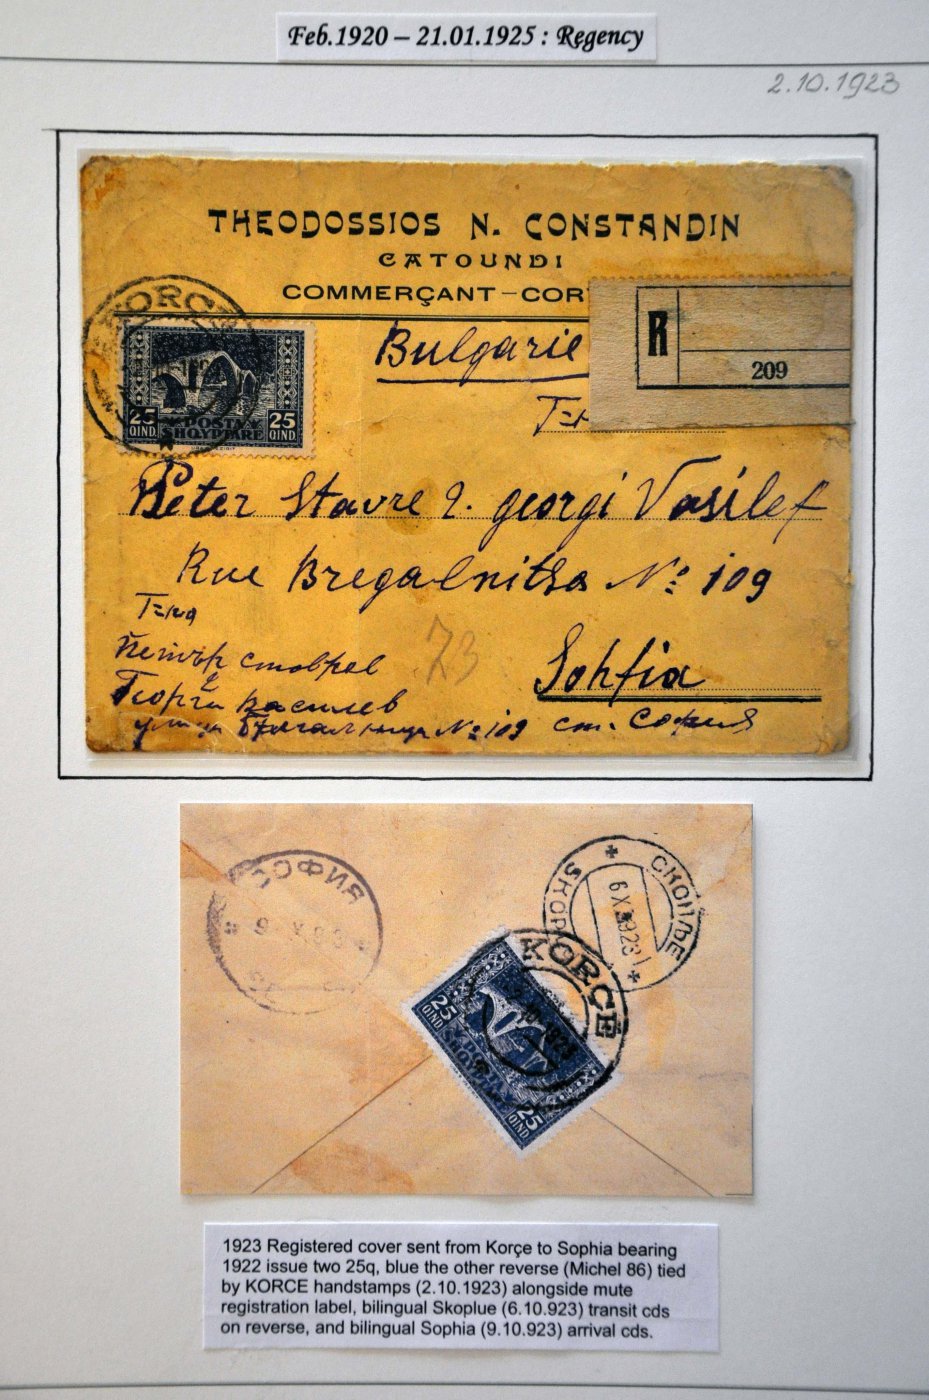 Feb.1920 – 21.01.1925 : Regency
2.10.1923
THEODOSSIOS N. CONSTANDIN
CATOUNDI
COMMERÇANT – COR
KORCE
R
209
Bulgarie
25 QIND. POSTA SHQYPTARE 25 QIND.
Peter Stavre & georgi Vasilef
Rue Bregalnitsa № 109
73
Sohfia
Петър ставрев
и
Георги василев
улица Брегалница № 109 ст. София
СОФИЯ
9 X 23
СКОПЉЕ
SKOP
6 X 923
KORÇE
2-10-1923
25 QIND POSTA SHQYPTARE 25 QIND
1923 Registered cover sent from Korçe to Sophia bearing
1922 issue two 25q, blue the other reverse (Michel 86) tied
by KORCE handstamps (2.10.1923) alongside mute
registration label, bilingual Skoplue (6.10.923) transit cds
on reverse, and bilingual Sophia (9.10.923) arrival cds.